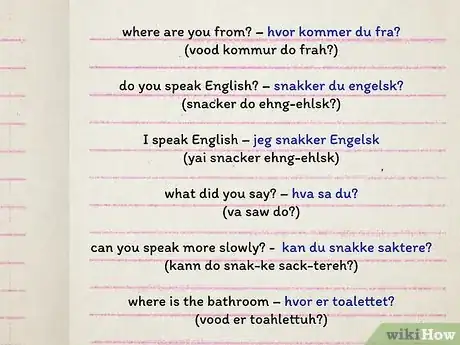 where are you from? – hvor kommer du fra?
(vood kommur do frah?)
do you speak English? – snakker du engelsk?
(snacker do ehng-ehlsk?)
I speak English – jeg snakker Engelsk
(yai snacker ehng-ehlsk)
what did you say? – hva sa du?
(va saw do?)
can you speak more slowly? - kan du snakke saktere?
(kann do snak-ke sack-tereh?)
where is the bathroom – hvor er toalettet?
(vood er toahlettuh?)
wikiHow